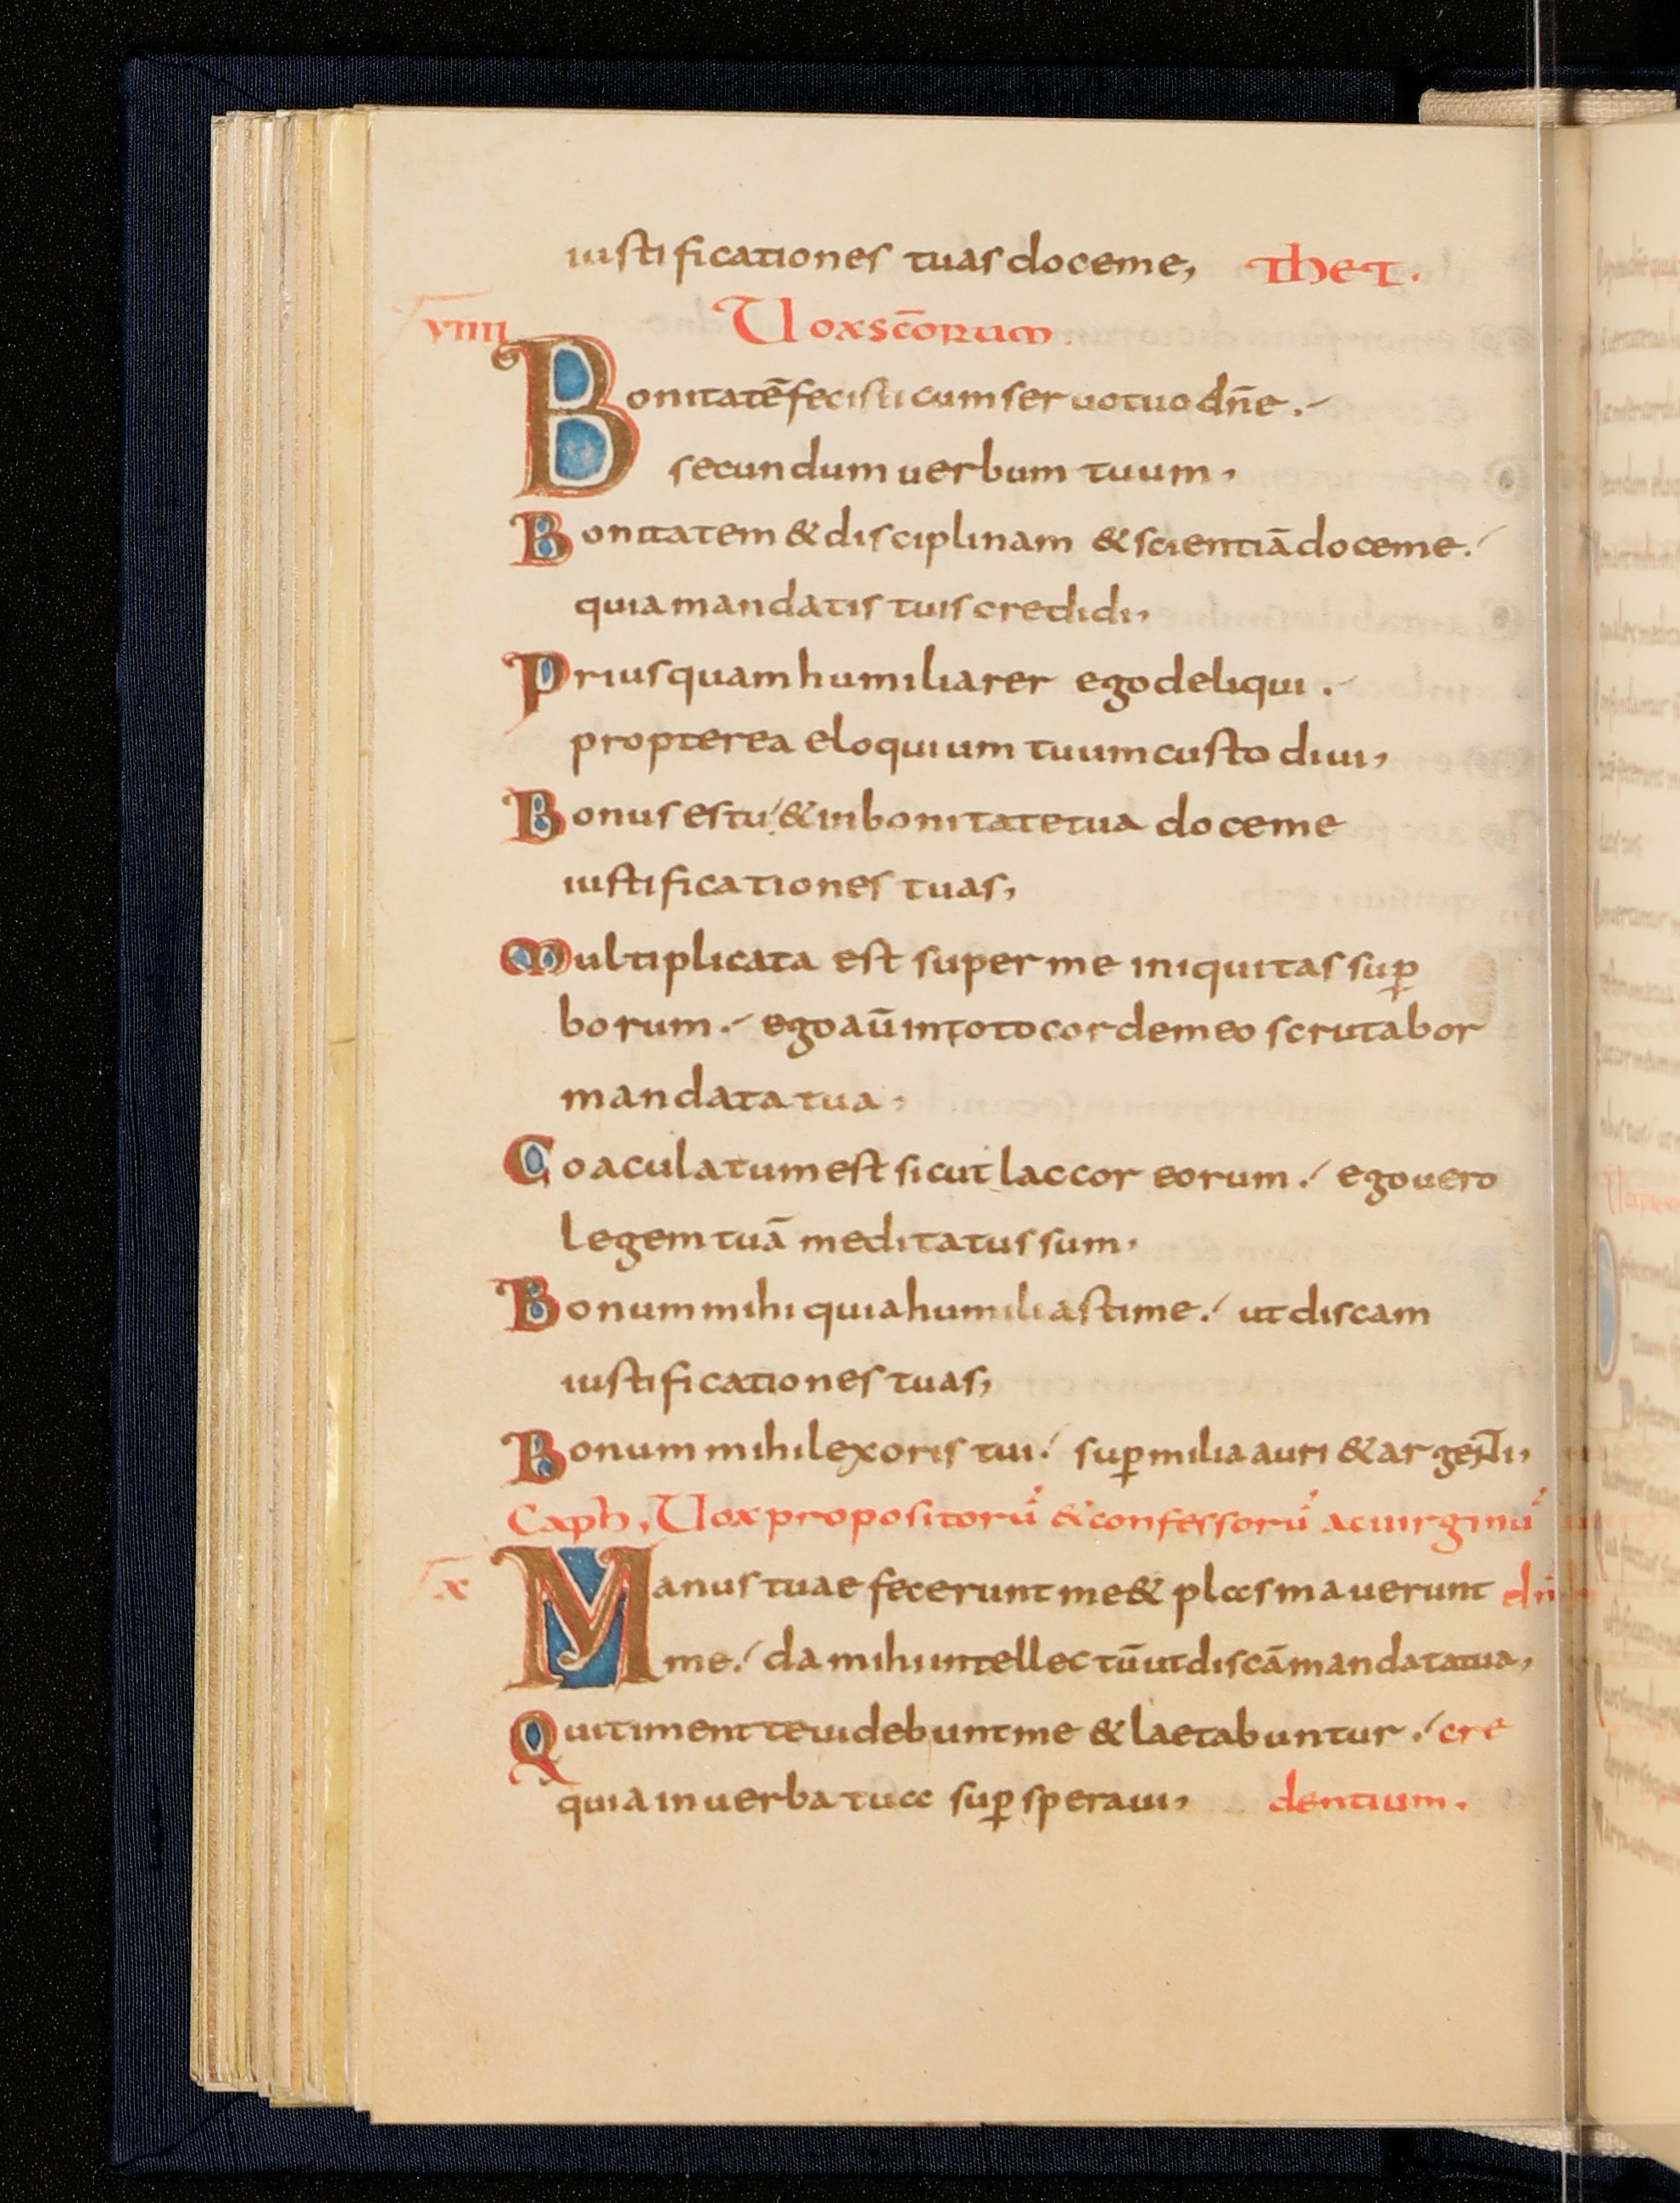 iustificationes tuas doceme, Thet.
Uox sc̄orum.
viiii
Bonitatē fecisti cum seruo tuo dn̄e.
secundum uerbum tuum,
Bonitatem & disciplinam & scientiā doceme.
quia mandatis tuis credidi,
Priusquam humiliarer ego deliqui.
propterea eloquium tuum custodiui,
Bonus es tu & in bonitate tua doceme
iustificationes tuas,
Multiplicata est super me iniquitas sup̱
borum. ego aū in toto corde meo scrutabor
mandata tua,
Coaculatum est sicut lac cor eorum. ego uero
legem tuā meditatus sum,
Bonum mihi quia humiliastime. ut discam
iustificationes tuas,
Bonum mihi lex oris tui. sup̱ milia auri & argenti,
Caph, Uox propositorū & confessorū ac uirginū
x
Manus tuae fecerunt me & plasmauerunt
me. da mihi intellectū ut discā mandata tua,
Qui timent te uidebunt me & laetabuntur. cre
quia in uerba tua sup̱speraui, dentium.